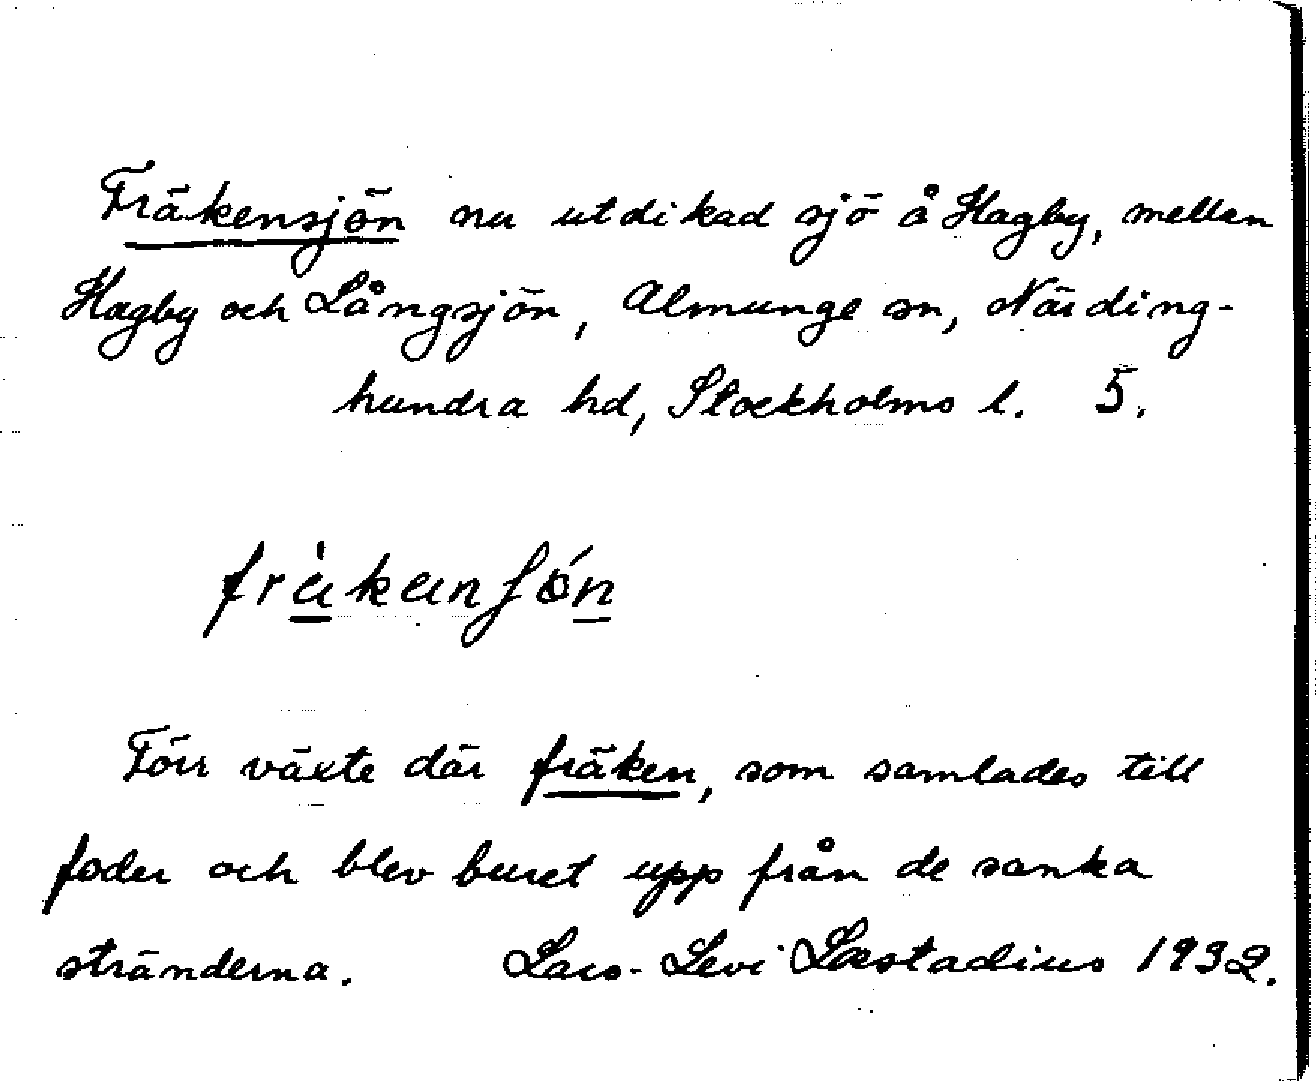 Fräkensjön nu utdikad sjö å Hagby, mellan
Hagby och Långsjön, Almunge sn, Närding-
hundra hd, Stockholms l. 5.
fräkanʃón
Förr växte där fräken, som samlades till
foder och blev buret upp från de sanka
stränderna. Lars-Levi Læstadius 1932.